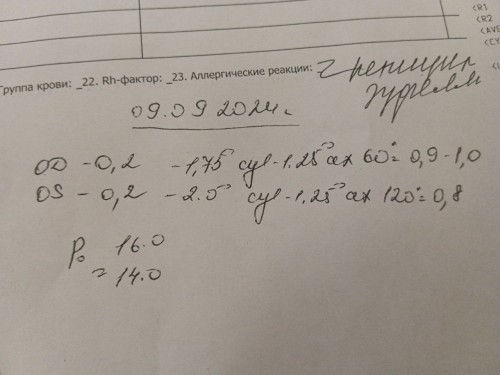 <R1
<R2
<AVE
<CY
Группа крови: _22. Rh-фактор: _23. Аллергические реакции:
09.09 2024г.
OD - 0,2 -1,75 cyl -1.25 ax 60° = 0,9-1,0
OS - 0,2 -2.0 cyl -1.25 ax 120° = 0,8
Po 16.0
= 14.0